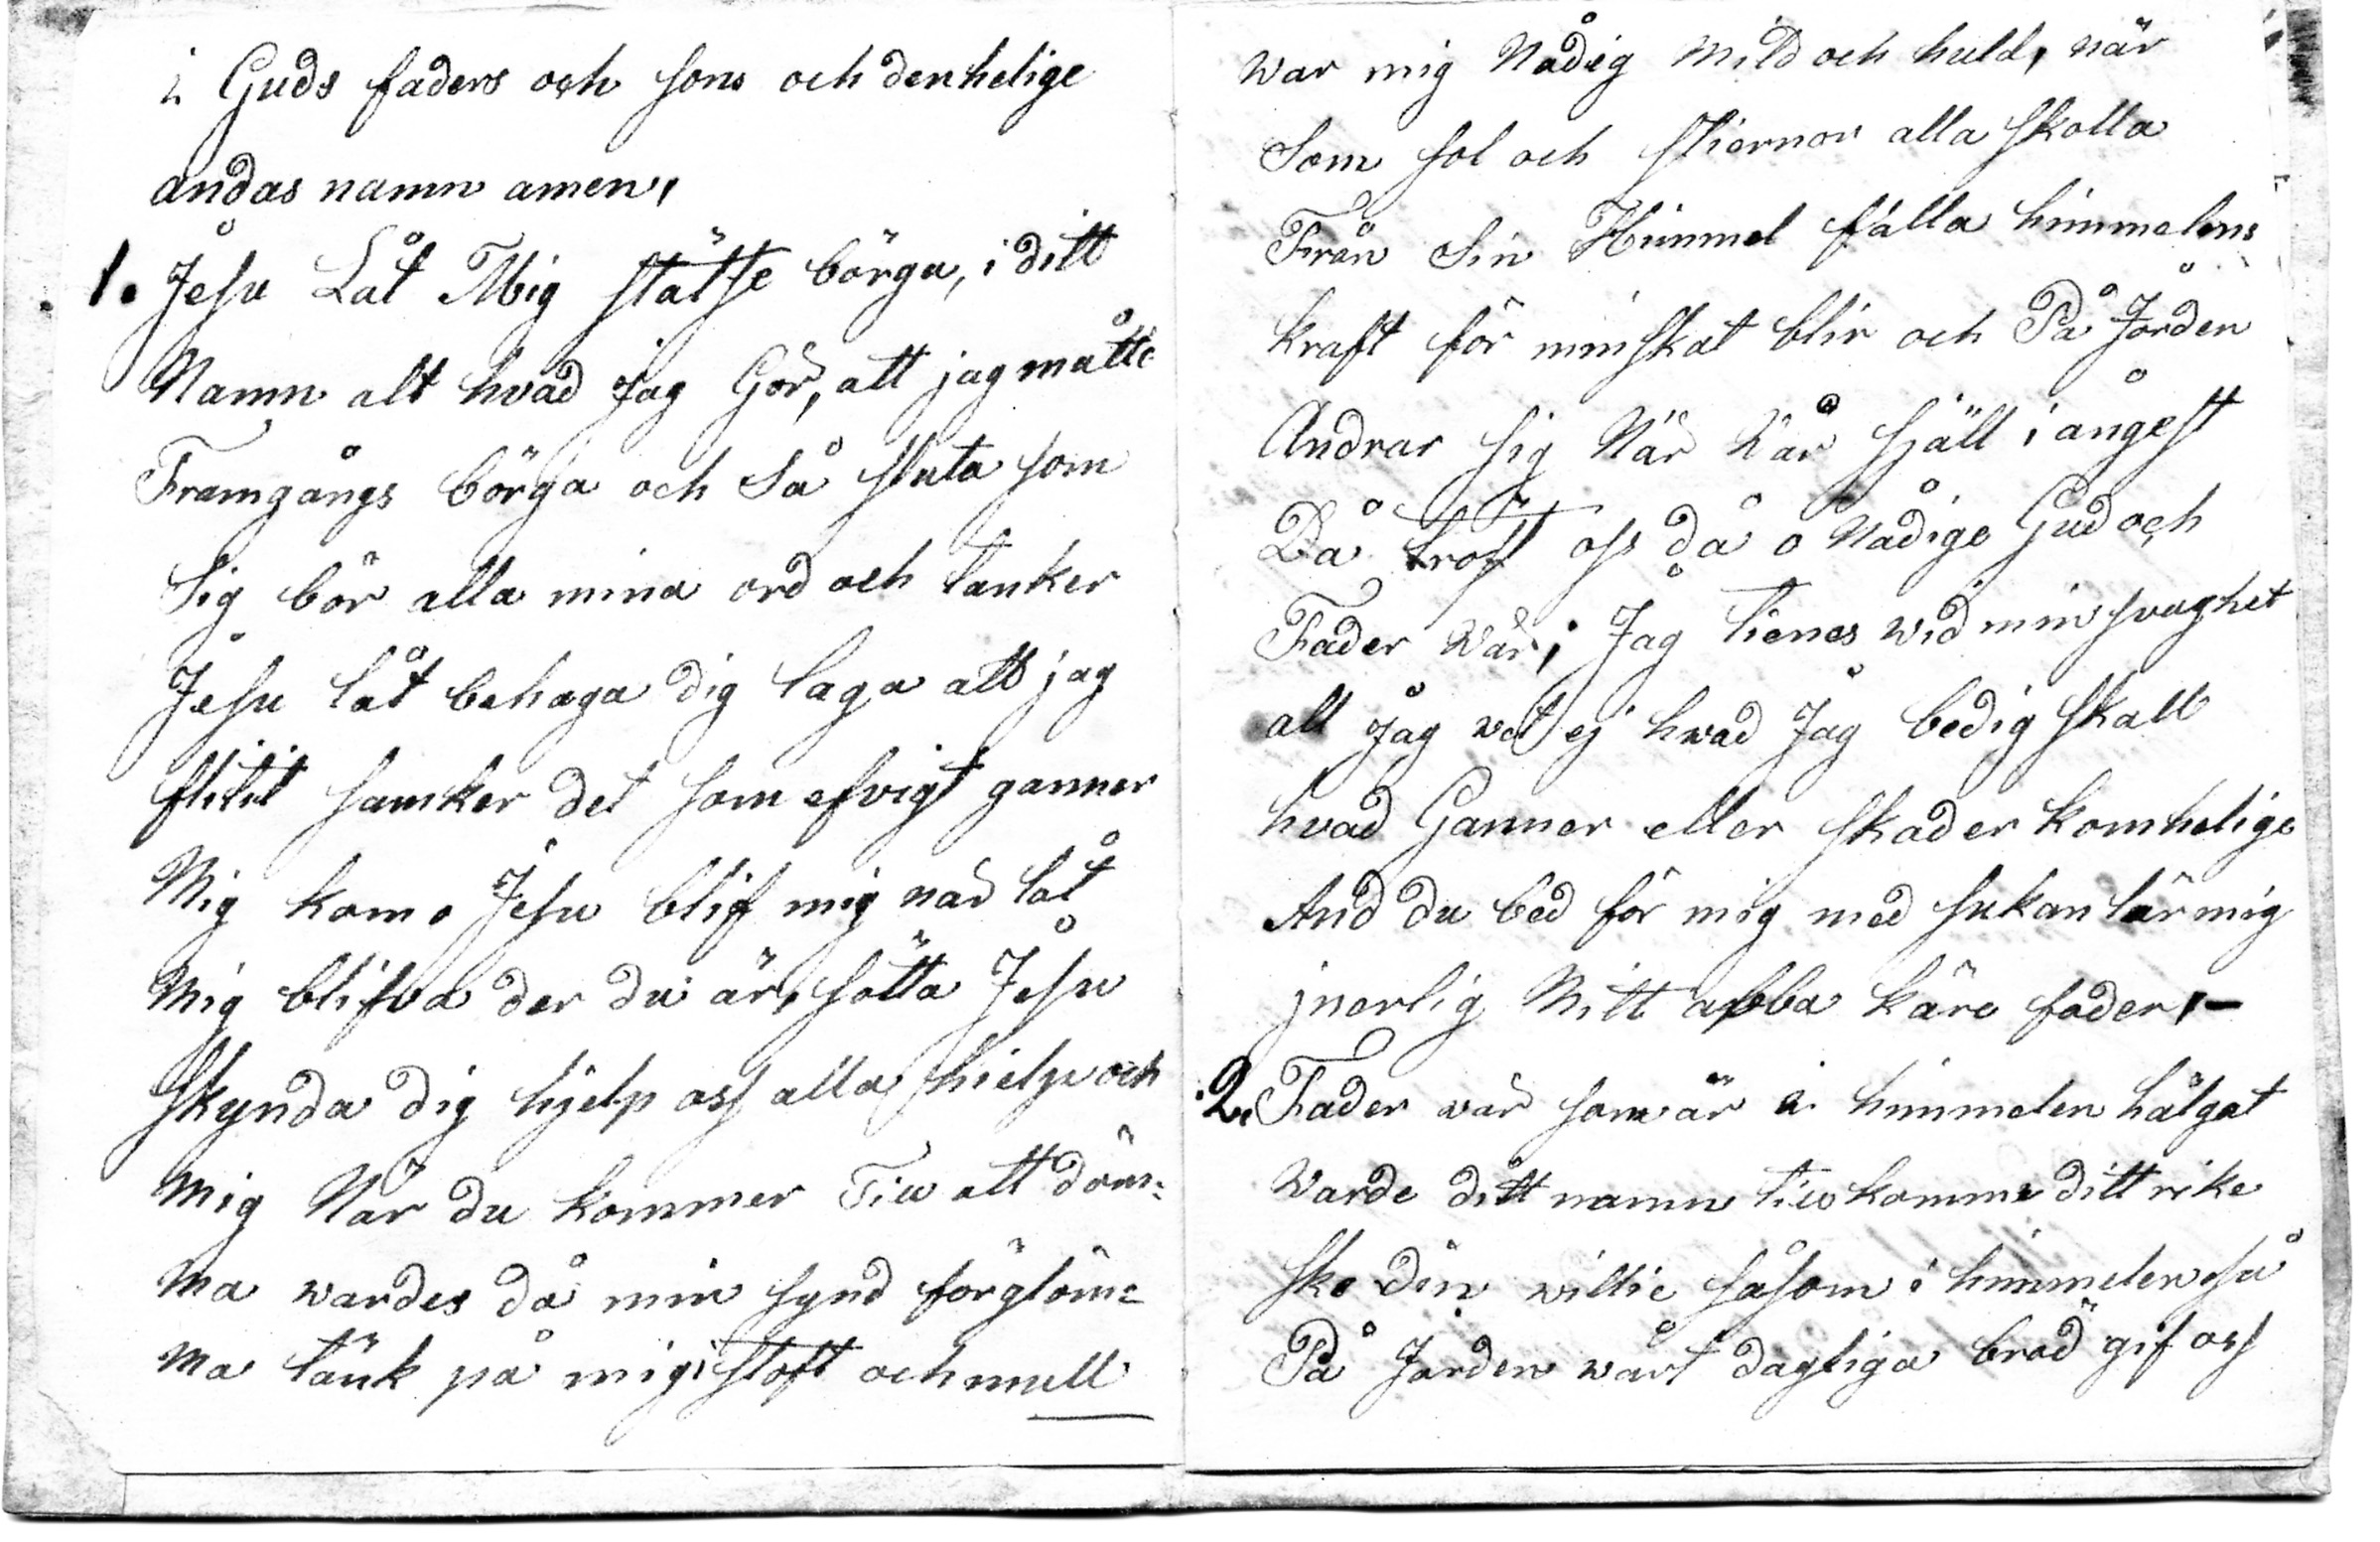 i Guds faders och sons och den helige
andas namn amen,
1. Jesu Låt Mig stätse börga, i ditt
Namn alt hvad jag Gör, att jag måtte
Framgångs börga och Så sluta som
Sig bör alla mina ord och tanker
Jesu låt behaga dig laga att jag
flitit samker det som efvigt ganner
Mig kom o Jesu blif mig när låt
Mig blifva der du är, sötta Jesu
skynda dig hjelp oss alla hielp och
Mig När du kommer Till att döm=
ma wardes då min synd förglöm=
ma tänk på mig i stoft och mull
War mig Nådig Mild och huld, när
Som sol och stiernor alla skolla
Från Sin Himmel falla himmelens
kraft för minskat blir och På Jorden
Andrar sig När Vår själl i ångest
Då tröst oss då o Nådige Gud och
Fader Vår; Jag tienes wid min svaghet
alt Jag vet ej hvad Jag bedig skall
hvad Ganner eller skader kom helige
And du bed för mig med sukan lär mig
jnerlig Mitt abba käre fader,-
2. Fader wår som är i himmelen hälgat
Warde ditt namn till komme ditt rike
ske din willie såsom i himmelen så
På Jorden wårt dagliga bröd gif oss